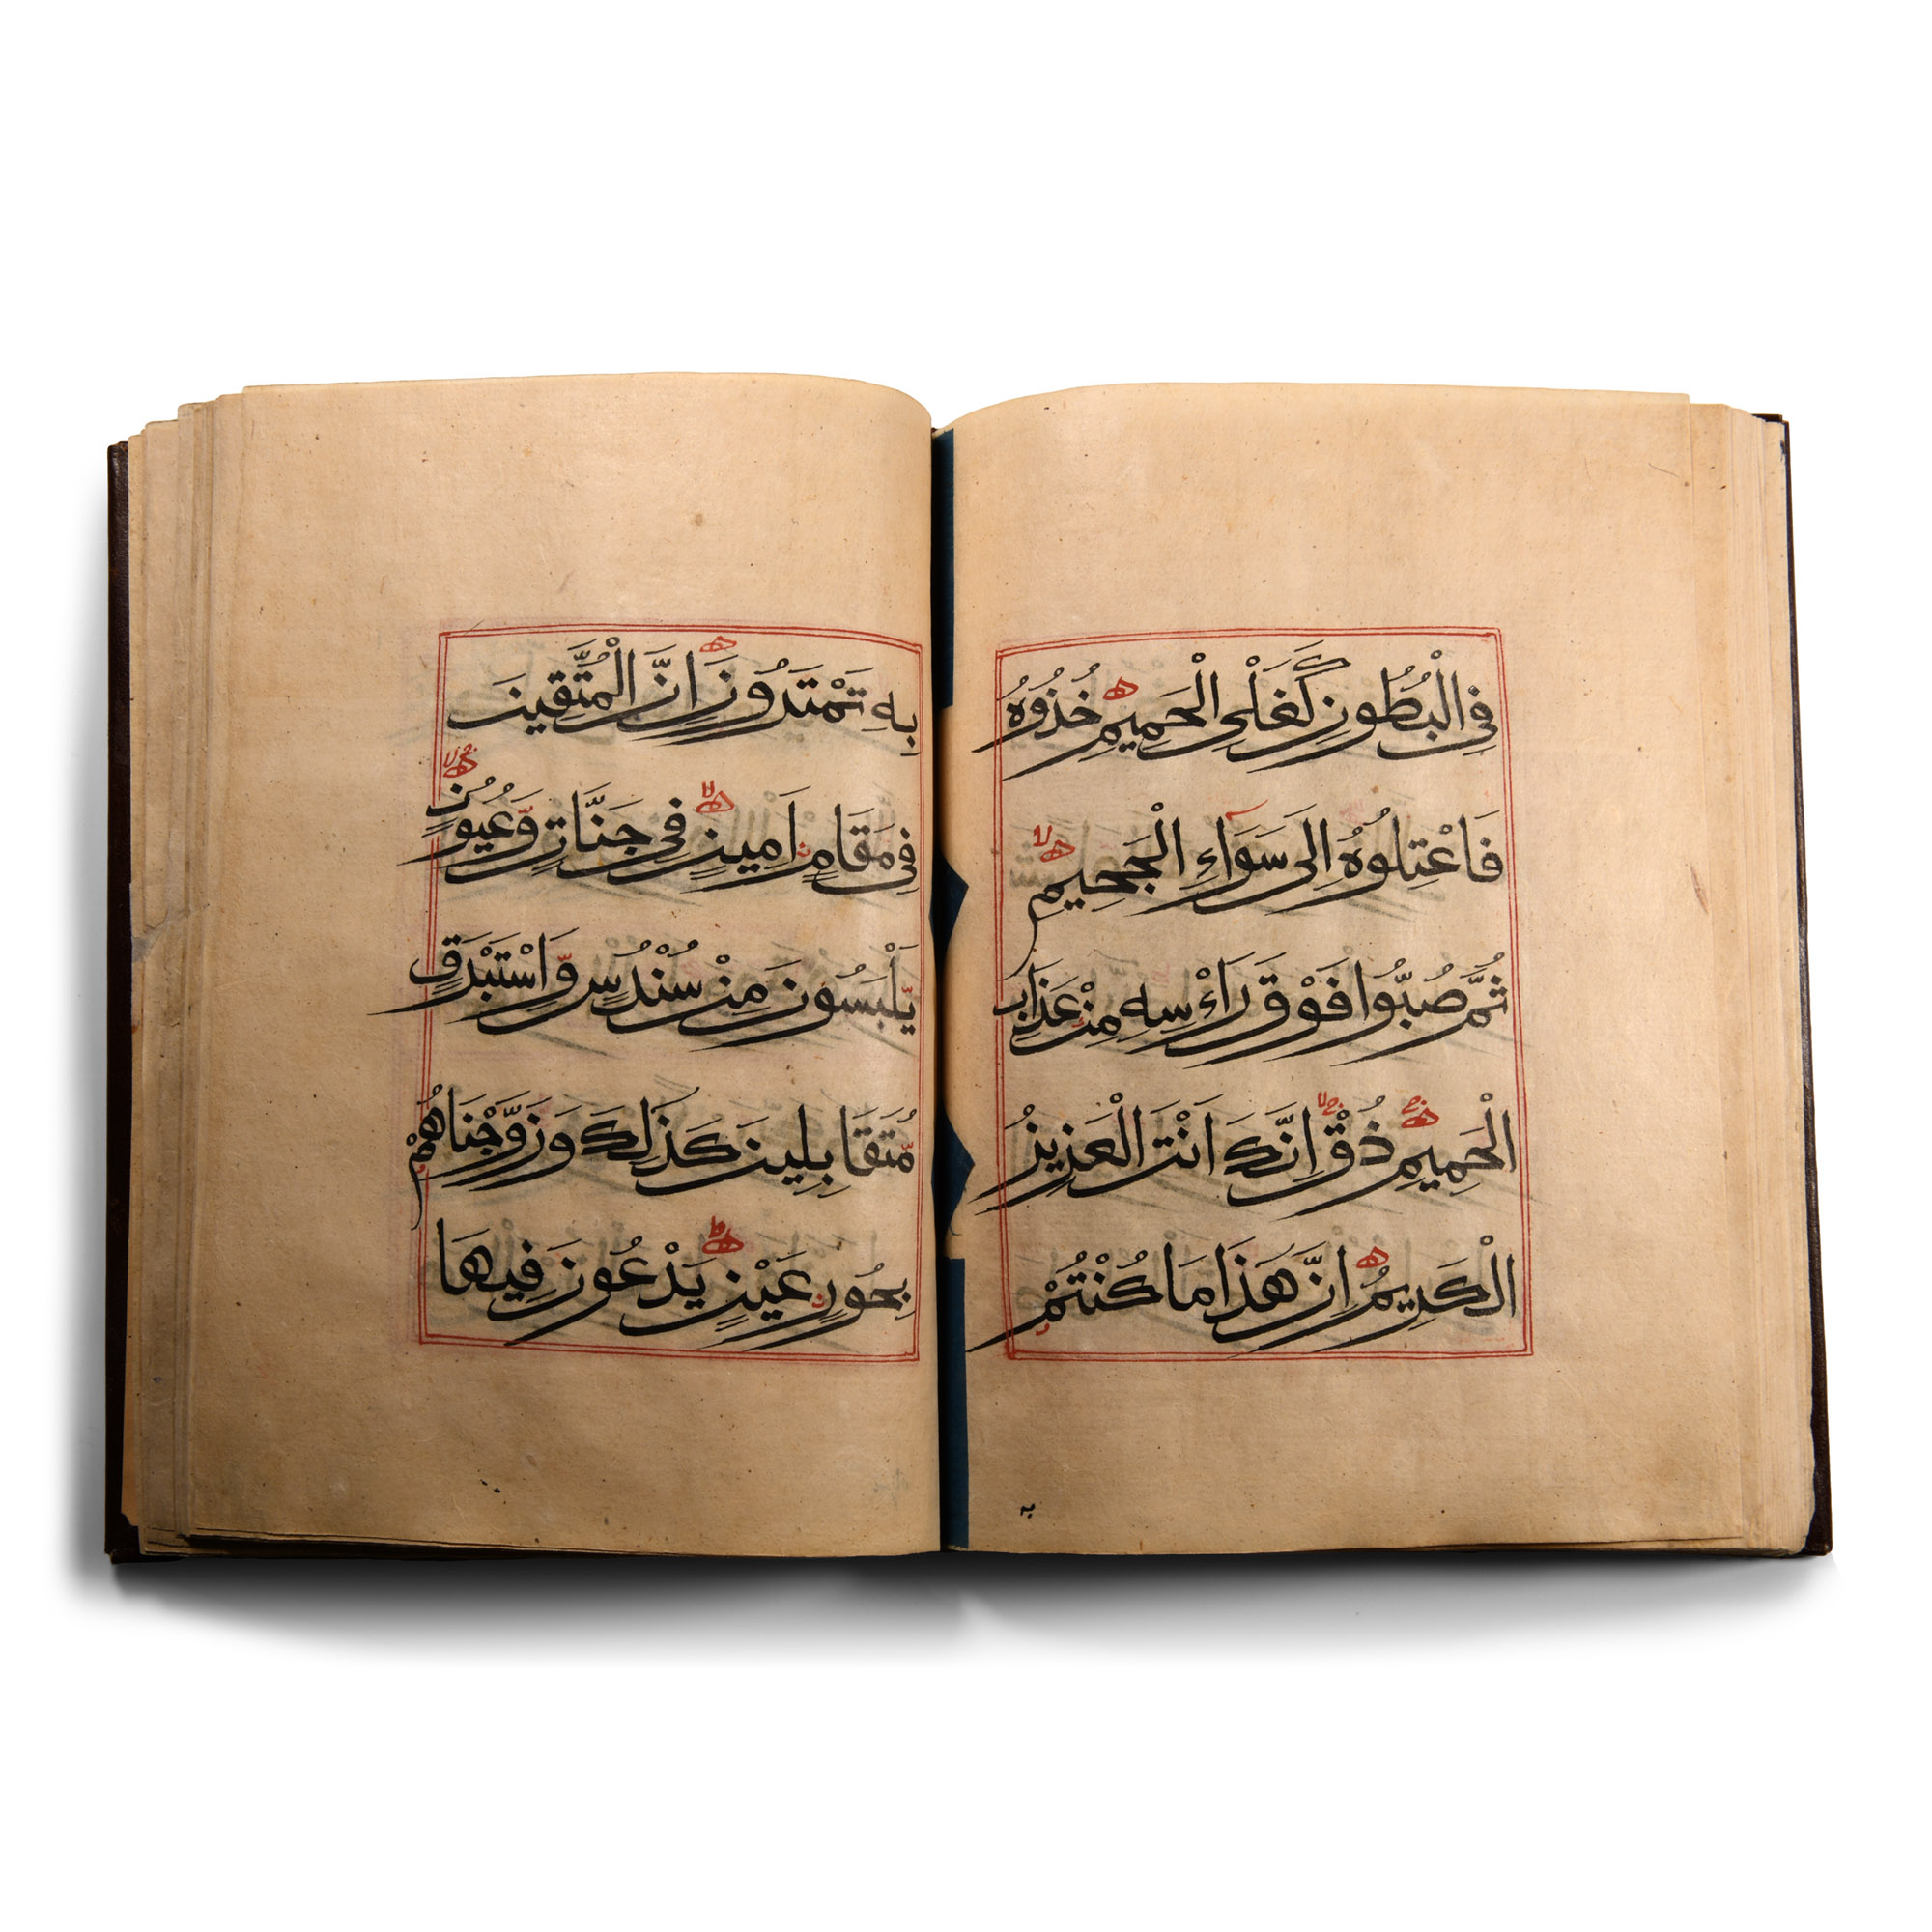 فِى الْبُطُونِ كَغَلْىِ الْحَمِيمِ خُذُوهُ
فَاعْتِلُوهُ اِلٰى سَوَآءِ الْجَحِيمِ
ثُمَّ صُبُّوا فَوْقَ رَاْءْسِهِ مِنْ عَذَابِ
الْحَمِيمِ ذُقْ اِنَّكَ اَنْتَ الْعَزِيزُ
الْكَرِيمُ اِنَّ هَذَا مَا كُنْتُمْ
به
بِهِ تَمْتَدُونَ اِنَّ الْمُتَّقِينَ
فِى مَقَامٍ اَمِينٍ فِى جَنَّاتٍ وَّعُيُونٍ
يَلْبَسُونَ مِنْ سُنْدُسٍ وَّاسْتَبْدَقٍ
مُّتَقَابِلِينَ كَذَالِكَ وَزَوَّجْنَاهُمْ
بِحُورٍ عَيْنٍ يَدْعُونَ فِيهَا